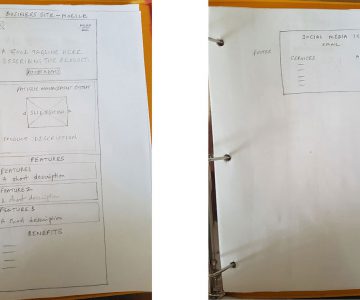 BUSINESS SITE - MOBILE
MENU
A BOLD TAGLINE HERE
DESCRIBING THE PRODUCT.
FATIGUE MANAGEMENT SYSTEM
SLIDESHOW
PRODUCT DESCRIPTION
FEATURES
FEATURE 1
A short description
FEATURE 2
A short description
FEATURE 3
A short description
BENEFITS
SOCIAL MEDIA
EMAIL
FOOTER
SERVICES